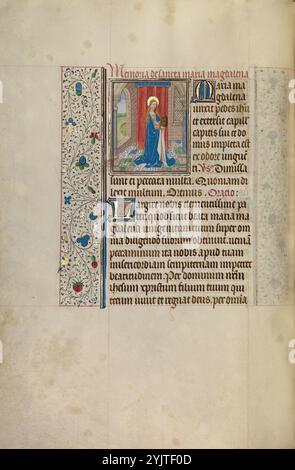 Memoria de sancta maria magdalena
Maria ma
gdalena
unxit pedes ihu
et extersit capill
capitis sui et do
mus impleta est
ex odore ungue
ti. Vs. Dimissa
sunt ei peccata multa. Quoniam di
lexit multum. Oremus. Oratio
Largire nobis clementissime pr
quod sicut beata maria ma
gdalena unigenitum super om
ia diligendo suorum obtinuit venia
peccaminum ita nobis apud tuam
misericordiam sempiternam impetret
beatitudinem. Per dominum nrm
ihesum xpristum filium tuum qui
tecum vivit et regnat deus, per omia
alamy
Image ID: 2YJTF0D
www.alamy.com